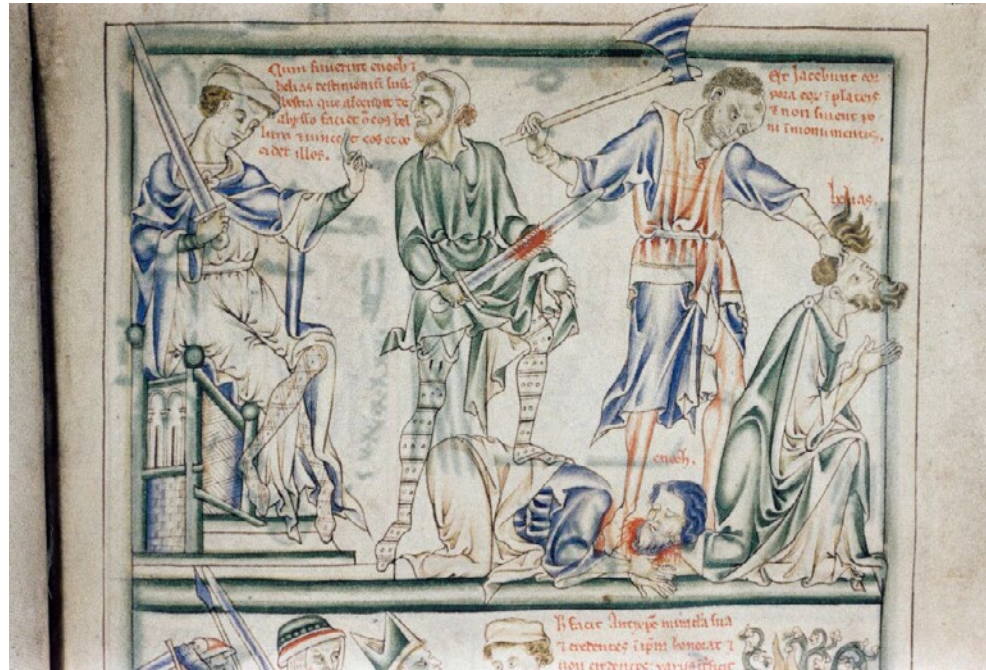 Cum fiuerint enoch ⁊
helias testimonium suu̅
bestia que ascendit de
abysso faciet c̅ eos bel
lum ⁊ uincet eos et oc
cidet illos.
Et Jacebunt cor
pora eoꝝ i̅ plateis
⁊ non sinent po
ni i̅ monumentis.
helias.
enoch.
facit miracula sua
⁊ credentes i̅ ip̅m honorat ⁊
non credentes